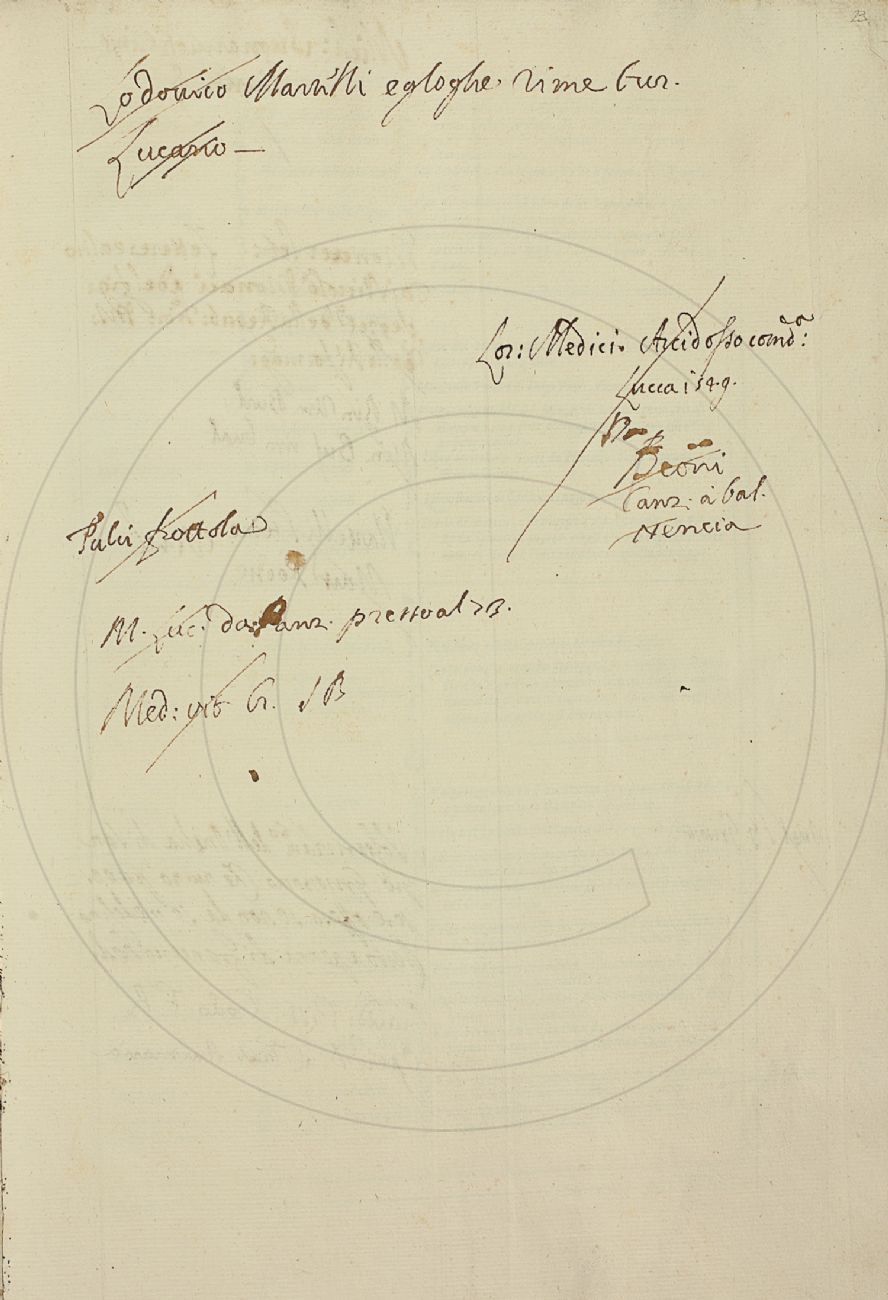 23.
Lodovico Martelli egloghe. rime bur.
Lucano —
Lor: Medici. Arcidosso comdª:
Lucca 1549.
Beoni
Canz. à bal.
Nencia
Pulci frottola
M. Luc. da. Canz. presso al 73.
Med: vit br. S B